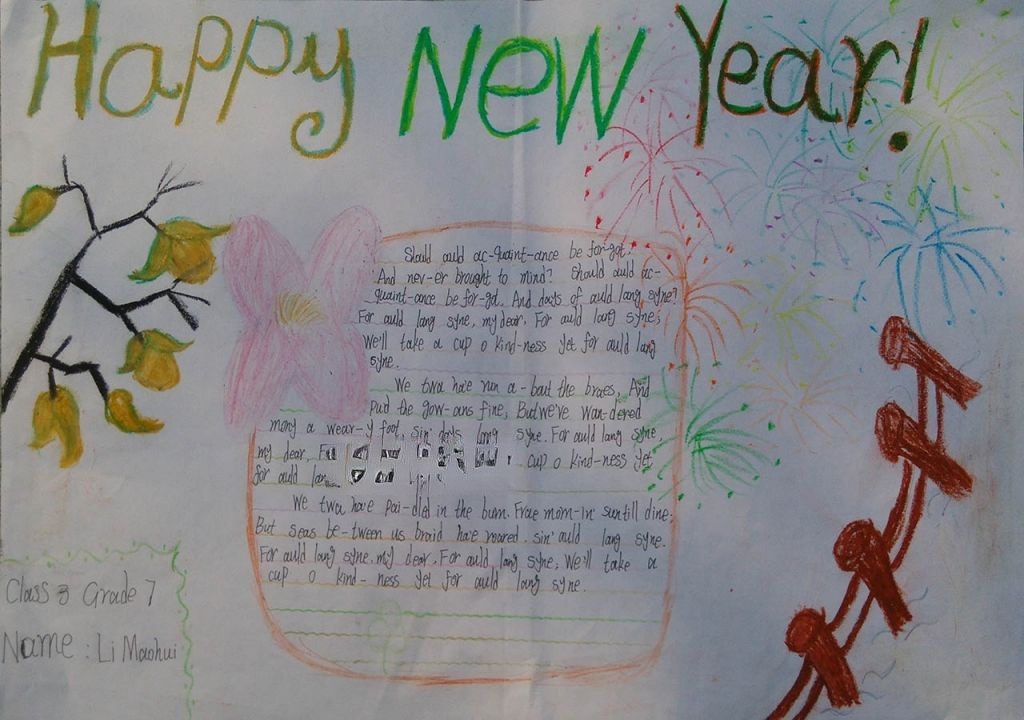 Happy New Year!
Should auld ac-quaint-ance be for-got.
And nev-er brought to mind? Should auld ac-
quaint-ance be for-got. And days of auld lang syne?
For auld lang syne, my dear. For auld lang syne;
We'll take a cup o kind-ness yet for auld lang
syne.
We twa have run a-bout the braes, And
pu'd the gow-ans fine, But we've wan-dered
many a wear-y foot, sin' days lang syne. For auld lang syne,
my dear. cup o kind-ness yet
for auld
We twa have pai-dled in the burn. Frae morn-in' sun till dine;
But seas be-tween us braid have roared. sin' auld lang syne.
For auld lang syne, my dear. For auld lang syne; We'll take a
cup o kind-ness yet for auld lang syne.
Class 3 Grade 7
Name: Li Maohui